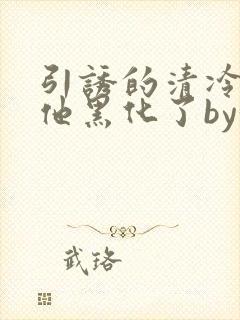 引誘的清冷
他黑化了by
武珞